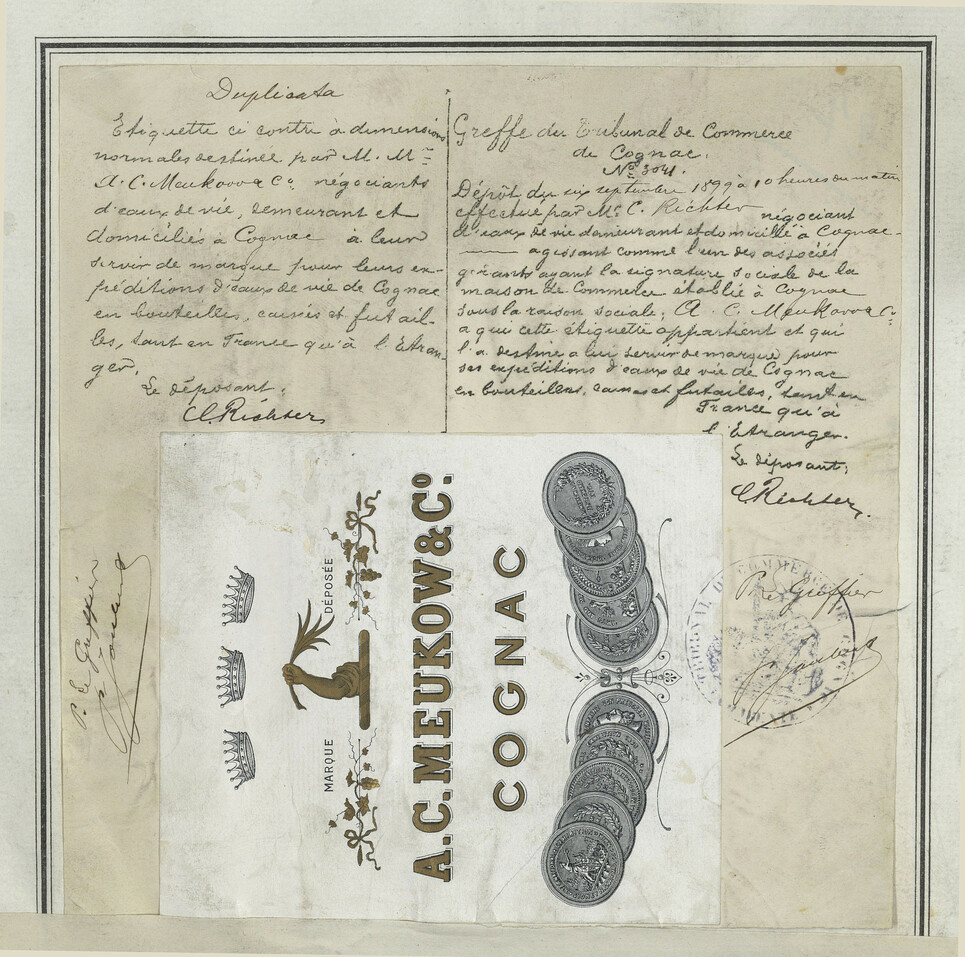 Duplicata
Etiquette ci contre à dimensions
normales destinée par M. Mrs
A. C. Meukow & Co négociants
d'eaux de vie, demeurant et
domiciliés à Cognac à leur
servir de marque pour leurs ex-
péditions d'eaux de vie de Cognac
en bouteilles, caisses et futail-
les, tant en France qu'à l'Etran-
ger.
Le déposant.
C. Richter
Greffe du Tribunal de Commerce
de Cognac.
No 3041.
Dépôt du six septembre 1899 à 10 heures du matin
effectué par Mr C. Richter négociant
d'eaux de vie demeurant et domicilié à Cognac-
agissant comme l'un des associés
gérants ayant la signature sociale de la
maison de Commerce établie à Cognac
sous la raison sociale: A. C. Meukow & Co
a qui cette étiquette appartient et qui
l'a destiné a lui servir de marque pour
ses expéditions d'eaux de vie de Cognac
en bouteilles, caisses et futailles, tant en
France qu'à
l'Etranger.
Le déposant:
C. Richter.
P. Le Greffier
P. Le Greffier
TRIBUNAL DE COMMERCE DE
MARQUE DÉPOSÉE
A.C. MEUKOW & Co.
COGNAC